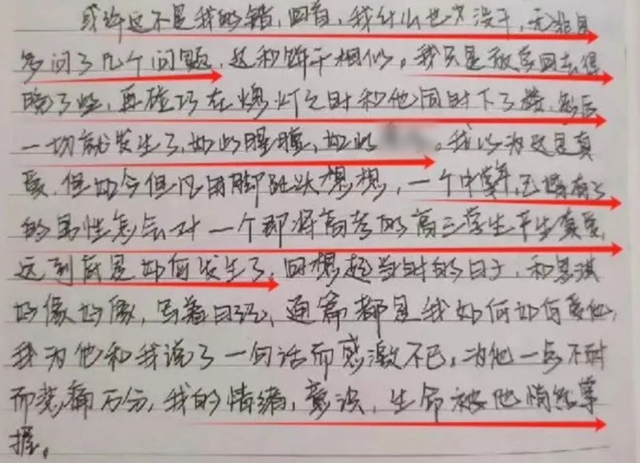 或许这不是我的错，回首，我什么也没干，无非是
多问了几个问题，这和饼干相似。我只是放学回去得
晚了些，再碰巧在熄灯之时和他同时下了楼，然后
一切就发生了，如此朦胧，如此 。我以为这是真
爱，但如今但凡用脚趾头想想，一个中年，已婚育了
的男性怎会对一个即将高考的高三学生产生真爱
这到底是如何发生了，回想起当时的日子，和
好像好像，写着日记，通篇都是我如何如何爱他，
我为他和我说了一句话而感激不已，为他一点不耐
而悲痛万分，我的情绪，意识，生命被他悄然掌
握。